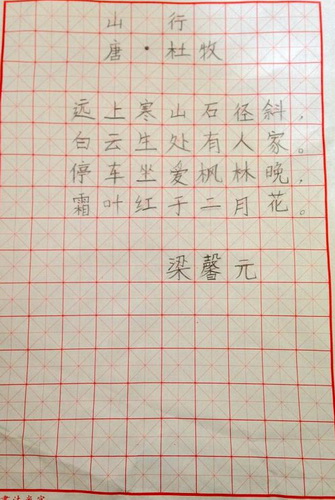 山行
唐·杜牧
远上寒山石径斜，
白云生处有人家。
停车坐爱枫林晚，
霜叶红于二月花。
梁馨元